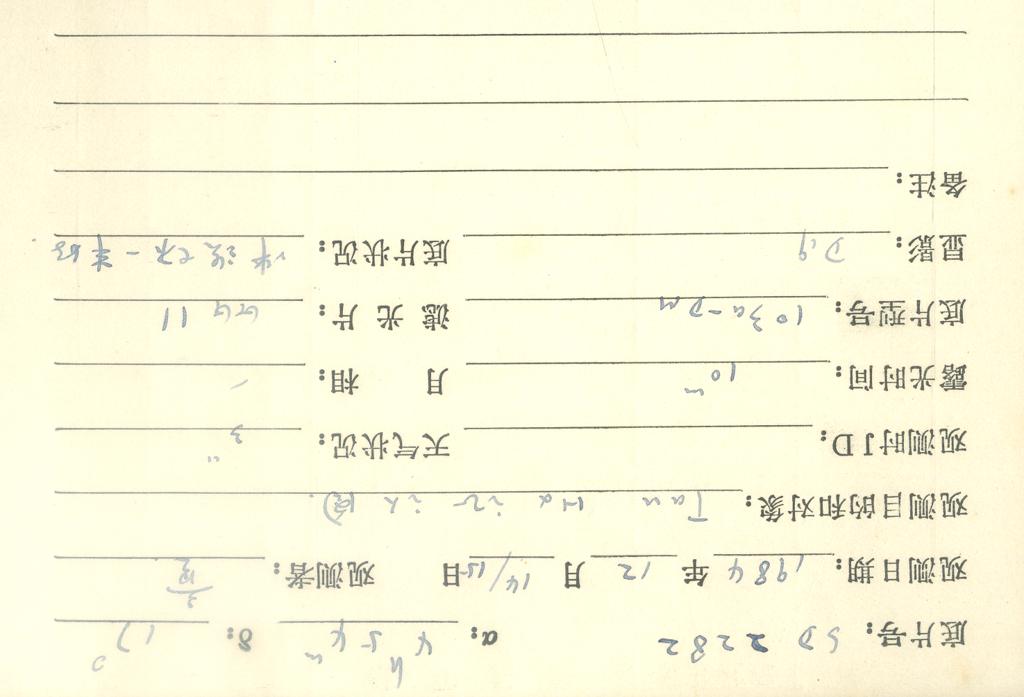 底片号: SD 2282 α: 4h 54m δ: 17°
观测日期: 1984 年 12 月 14/15 日 观测者:
观测目的和对象: Tau Hα
观测时JD: 天气状况: 3"
露光时间: 10m 月 相: –
底片型号: 103a-D 滤 光 片: GG 11
显影: D19 底片状况:
备注: